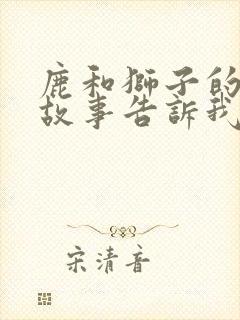 鹿和獅子的
故事告訴我
宋清音